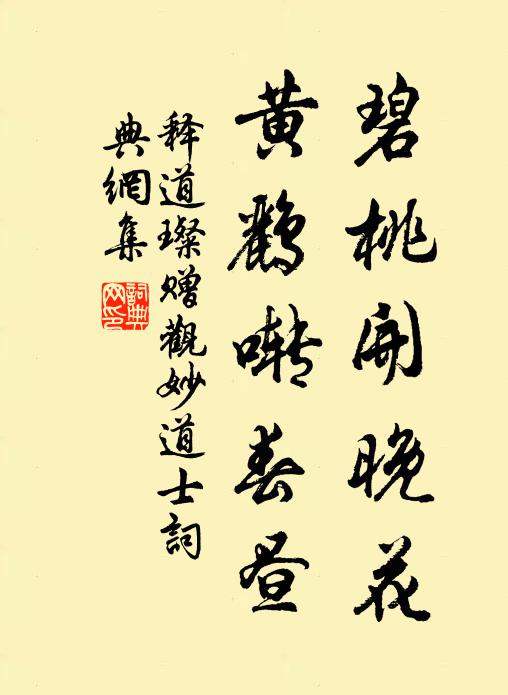 碧桃開晚花
黃鸝囀春晝
釋道璨贈觀妙道士詞
典網集
詞典網印